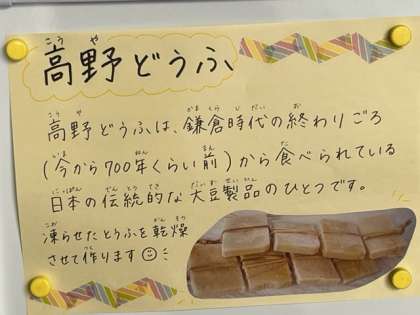 高野どうふ
高野どうふは、鎌倉時代の終わりごろ
(今から700年くらい前)から食べられている
日本の伝統的な大豆製品のひとつです。
凍らせたとうふを乾燥
させて作ります